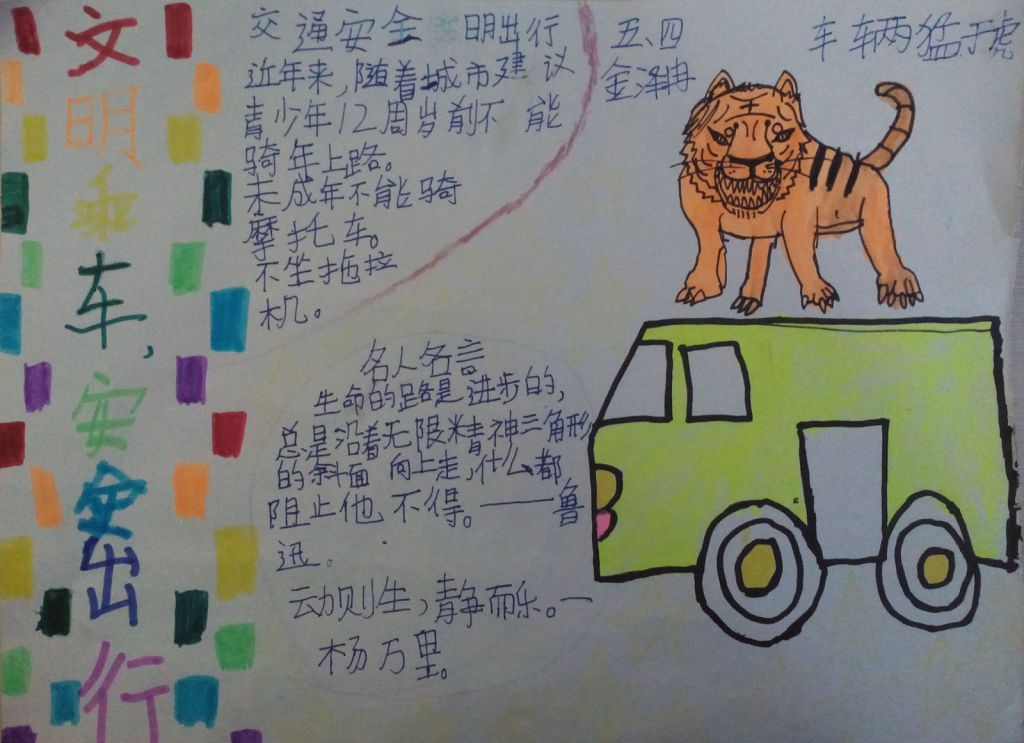 文明乘车,安全出行
交通安全 明出行
近年来,随着城市建议
青少年12周岁前不能
骑年上路。
未成年不能骑
摩托车。
不坐拖拉
机。
五、四
金泽冉
车辆猛于虎
名人名言
生命的路是进步的,
总是沿着无限精神三角形
的斜面 向上走,什么都
阻止他 不得。——鲁
迅。
动则生,静而乐。—
杨万里。